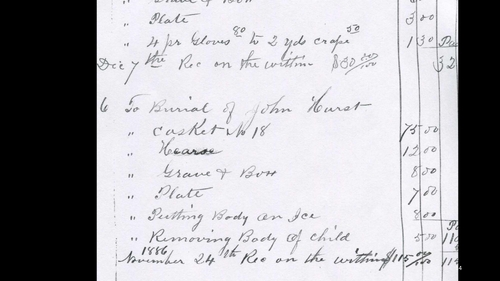 " Grave & Box
" Plate 3 00
" 4 pr Gloves 80 to 2 yds crape 50 1 30
Dec 7 the Rec on the within $30 00/100 32
6 To Burial of John Hurst
" Casket No 18 75 00
" Hearse 12 00
" Grave & Box 8 00
" Plate 7 00
" Putting Body on Ice 8 00
" Removing Body of Child 5 00
1886
November 24th Rec on the within $115 00/100